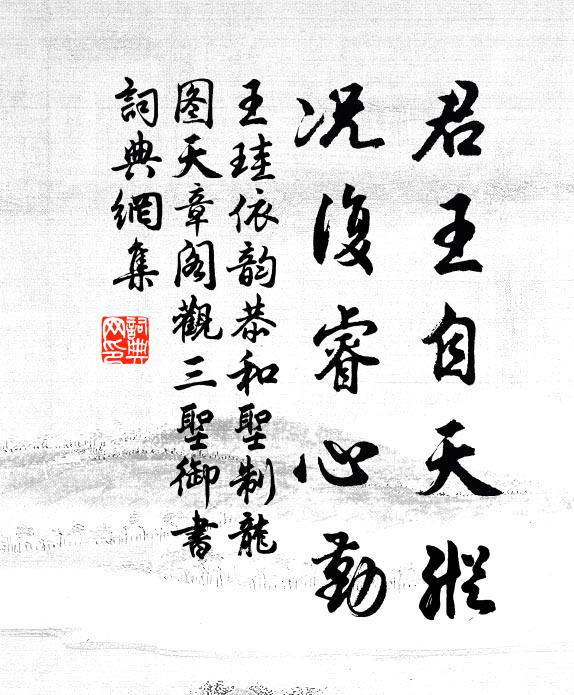 君王自天縱
況復睿心勤
王珪依韵恭和聖制龍
图天章阁觀三聖御書
詞典網集
詞典網印